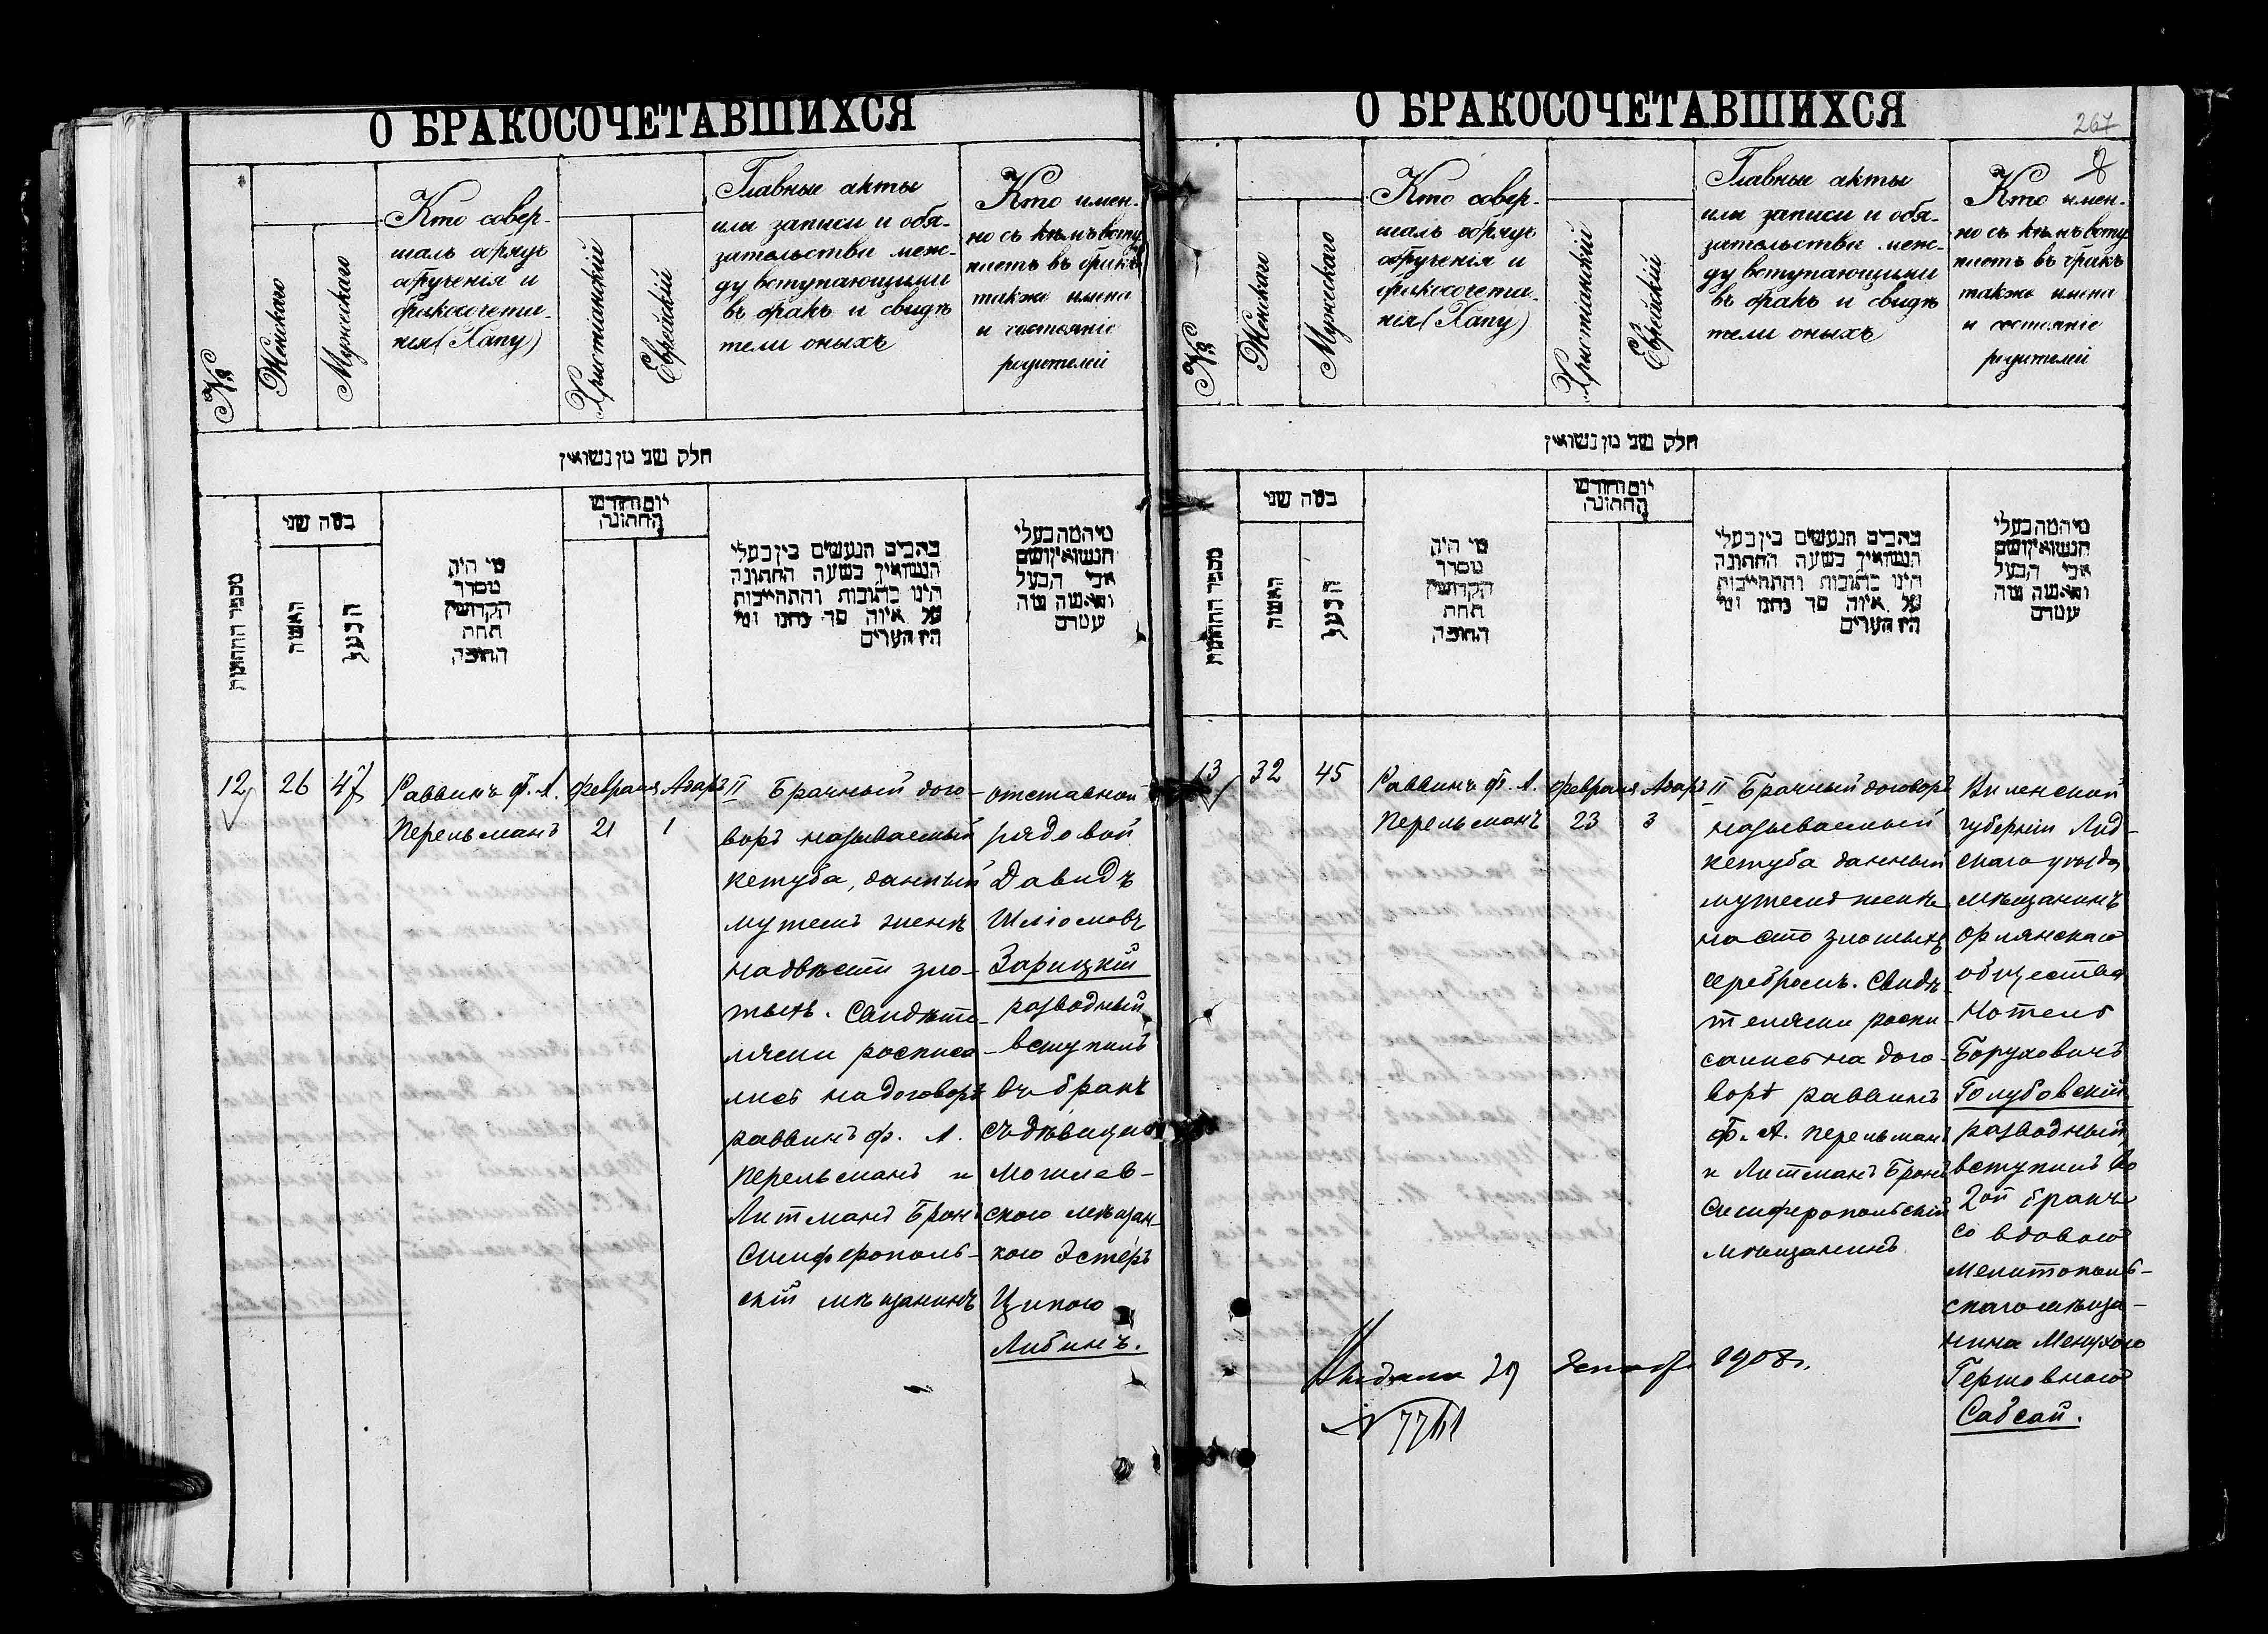 О БРАКОСОЧЕТАВШИХСЯ
№
Женскаго
Мужескаго
Кто совер-
шалъ обрядъ
обрученія и
бракосочета-
нія (Хапу)
Христіанскій
Еврейскій
Главные акты
или записи и обя-
зательства меж-
ду вступающими
въ бракъ и свидѣ
тели оныхъ
Кто имен-
но съ кѣмъ всту
паетъ въ бракъ
также имена
и состояніе
родителей
חלק שני מן נשואין
מספר החתונות
כמה שני
האשה
הבעל
מי היה
מסדר
הקדושין
תחת
החופה
יום וחודש
החתונה
כתבים הנעשים בין בעלי
הנשואין בשעה החתונה
היינו כתובות והתחייבות
על איזה סך נתנו ומי
היו העדים
מי המה בעלי
הנשואין ושם
אבי הבעל
והאשה מה
מעמדם
12
26
47
Раввинъ Ф. Л.
Перельманъ
Февраля
21
Адаръ II
1
Брачный дого-
воръ называемый
кетуба, данный
мужемъ женѣ
на двѣсти зло-
тыхъ. Свидѣте-
лями росписа-
лись на договорѣ
раввинъ Ф. Л.
Перельманъ и
Литманъ Брон
Симферополь-
скій мѣщанинъ
отставной
рядовой
Давидъ
Шліомовъ
Зарицкій
разводный
вступилъ
въ бракъ
съ дѣвицею
Могилев-
скою мѣщан-
кою Эстеръ
Ципою
Либинъ.
О БРАКОСОЧЕТАВШИХСЯ
267
№
Женскаго
Мужескаго
Кто совер-
шалъ обрядъ
обрученія и
бракосочета-
нія (Хапу)
Христіанскій
Еврейскій
Главные акты
или записи и обя-
зательства меж-
ду вступающими
въ бракъ и свидѣ
тели оныхъ
Кто имен-
но съ кѣмъ всту
паетъ въ бракъ
также имена
и состояніе
родителей
חלק שני מן נשואין
מספר החתונות
כמה שני
האשה
הבעל
מי היה
מסדר
הקדושין
תחת
החופה
יום וחודש
החתונה
כתבים הנעשים בין בעלי
הנשואין בשעה החתונה
היינו כתובות והתחייבות
על איזה סך נתנו ומי
היו העדים
מי המה בעלי
הנשואין ושם
אבי הבעל
והאשה מה
מעמדם
13
32
45
Раввинъ Ф. Л.
Перельманъ
Февраля
23
Адаръ II
3
Брачный договоръ
называемый
кетуба данный
мужемъ женѣ
на сто злотыхъ
серебромъ. Свидѣ-
телями роспи-
сались на дого-
ворѣ раввинъ
Ф. Л. Перельманъ
и Литманъ Бронъ
Симферопольскій
мѣщанинъ
Виленской
губерніи Лид-
скаго уѣзда
мѣщанинъ
Орлянскаго
общества
Нотель
Боруховичъ
Голубовскій
разводный
вступилъ во
2ой бракъ
со вдовою
Мелитополь-
скаго мѣща-
нина Менухою
Гершовною
Сабсай.
Выдана 29 декаб. 1908 г.
№